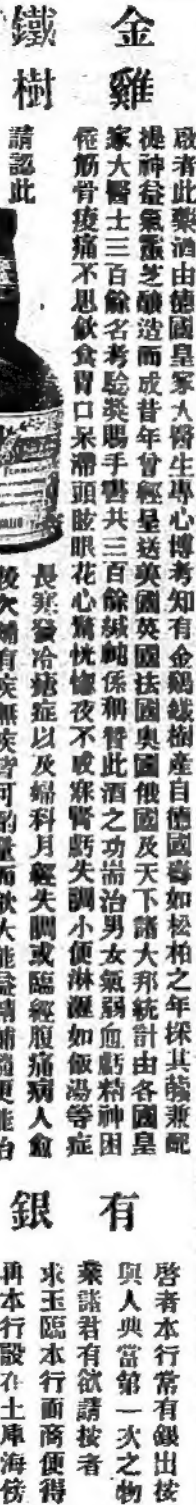 金雞
鐵樹
啟者此藥酒由德國皇家大醫生專心博考知有金雞鐵樹產自德國壽如松柏之年採其髓兼配
提神益氣靈芝釀造而成昔年曾經呈送英國英國法國奧國俄國及天下諸大邦統計由各國皇
家大醫士三百餘名考驗獎賜手書共三百餘緘純係稱贊此酒之功耑治男女氣弱血虧精神困
倦筋骨痠痛不思飲食胃口呆滯頭眩眼花心驚恍惚夜不成寐腎虧失調小便淋漓如飯湯等症
請認此
長寒發冷瘧症以及婦科月經失調或臨經腹痛病人愈
後欠補有疾無疾皆可酌量而飲大能益精補髓更能治
有銀
啓者本行常有銀出按
與人典當第一次之物
業諸君有欲請按者
求玉臨本行面商便得
再本行設在土庫海傍